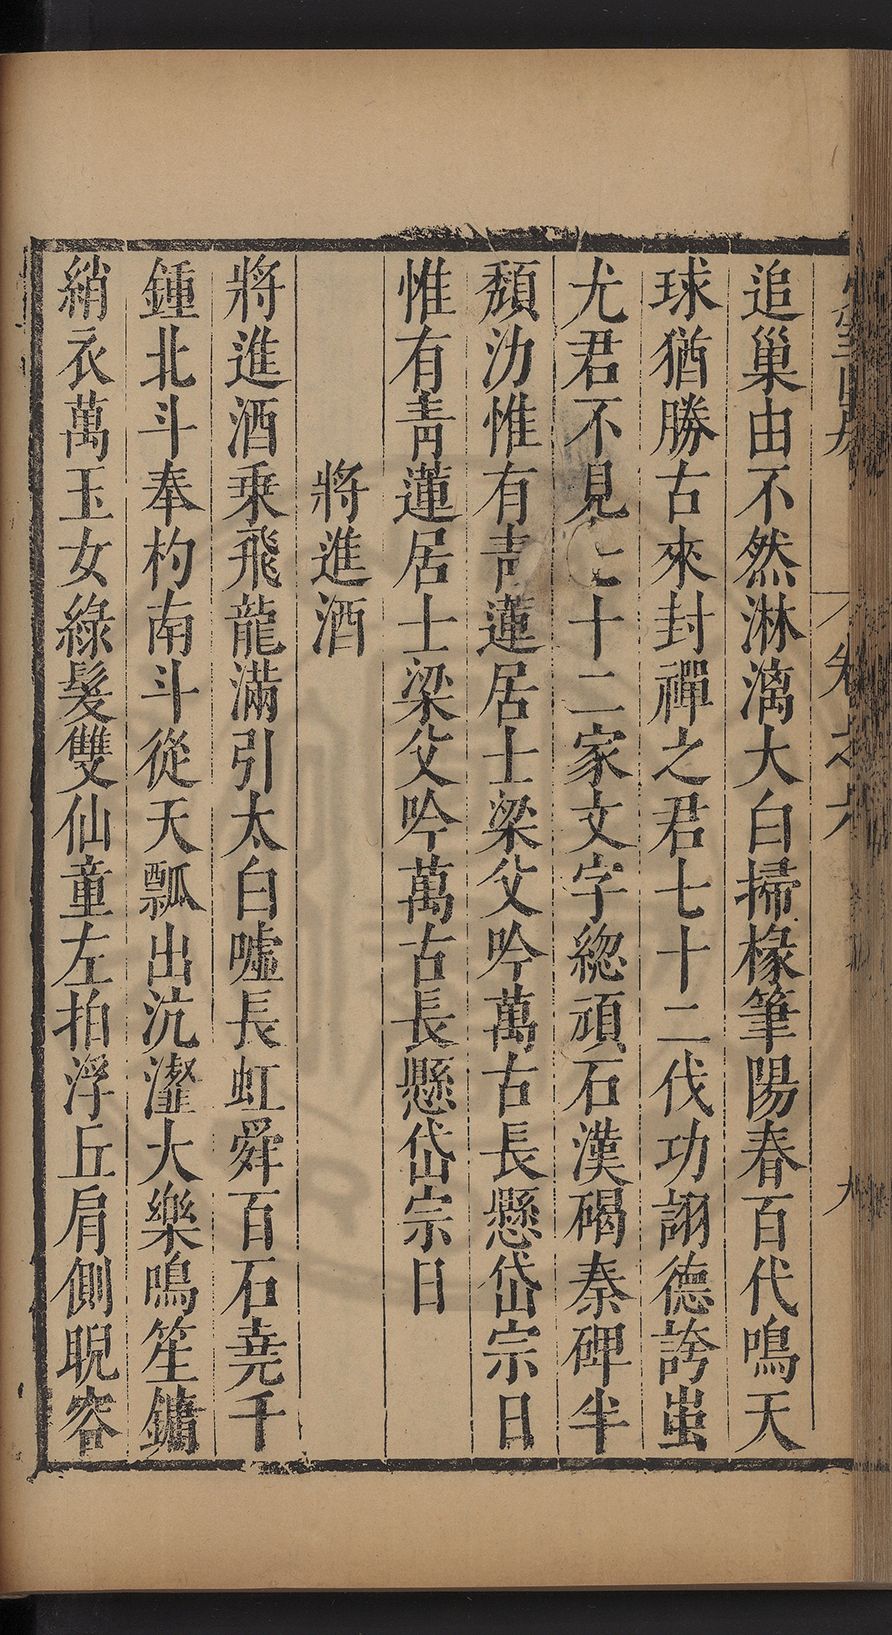 卷之六
九
追巢由不然淋漓大白掃椽筆陽春百代鳴天
球猶勝古來封禪之君七十二代功詡德誇蚩
尤君不見七十二家文字緫頑石漢碣秦碑半
頽泐惟有靑蓮居士梁父吟萬古長懸岱宗日
惟有靑蓮居士梁父吟萬古長懸岱宗日
將進酒
將進酒乘飛龍滿引太白噓長虹舜百石堯千
鍾北斗奉杓南斗從天瓢出沆瀣大樂鳴笙鏞
綃衣萬玉女綠髮雙仙童左拍浮丘肩側睨容